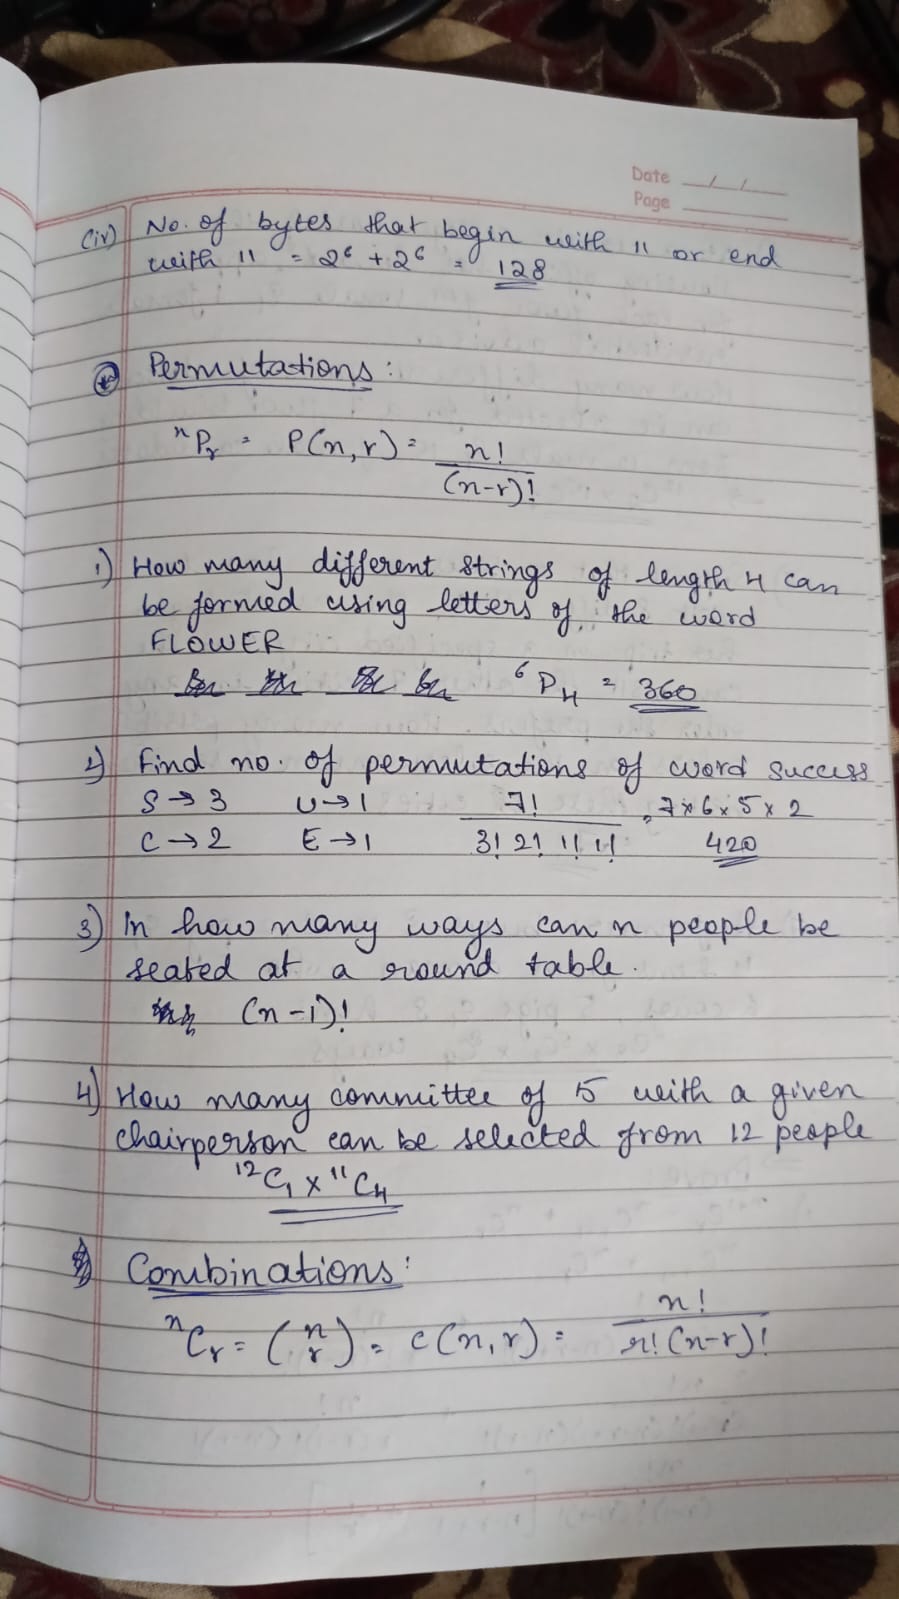 Date __/__/__
Page ______
(iv) No. of bytes that begin with 11 or end
with 11 = 2⁶ + 2⁶ = 128
Permutations :
ⁿPᵣ = P(n,r) = n! / (n-r)!
1) How many different strings of length 4 can
be formed using letters of the word
FLOWER
⁶P₄ = 360
2) Find no. of permutations of word success
S → 3 U → 1 7! / 3! 2! 1! 1! = 7 x 6 x 5 x 2
C → 2 E → 1 420
3) In how many ways can n people be
seated at a round table.
(n-1)!
4) How many committee of 5 with a given
chairperson can be selected from 12 people
¹²C₁ x ¹¹C₄
Combinations :
ⁿCᵣ = (n r) = c(n,r) = n! / r! (n-r)!